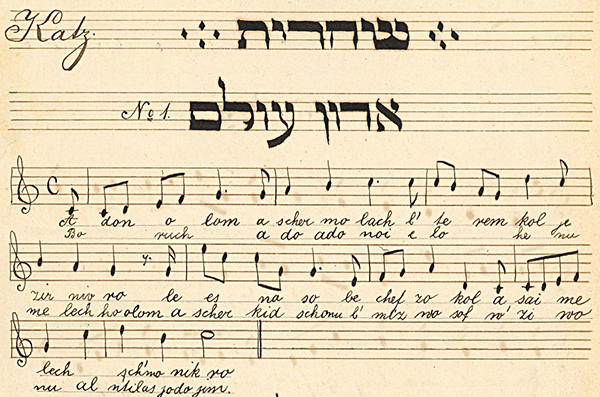 Katz.
שחרית
No 1. אדון עולם
A don o lom a scher mo lach b' te rem kol je
Bo ruch a do ado noi e lo he nu
zir niv ro le es na so be chef zo kol a sai me
me lech ho olom a scher kid schonu b' mtz wo sof w' zi wo
lech sch'mo nik ro
nu al n'tilas jodo jim.